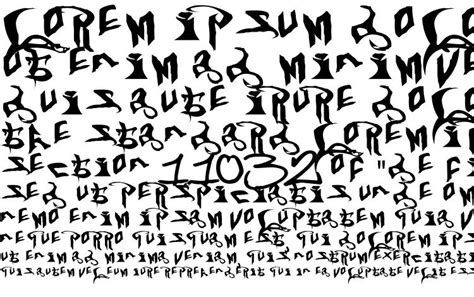 Lorem ipsum do
Ut enim ad minim v
Duis aute irure do
The standard Lorem
section 11032 of "de F
Sed ut perspiciatis unde o
Nemo enim ipsam voluptatem
Neque porro quisquam est, qui do
Ut enim ad minima veniam, quis nostrum exercitatio
Quis autem vel eum iure reprehenderit qui in ea voluptate velit esse